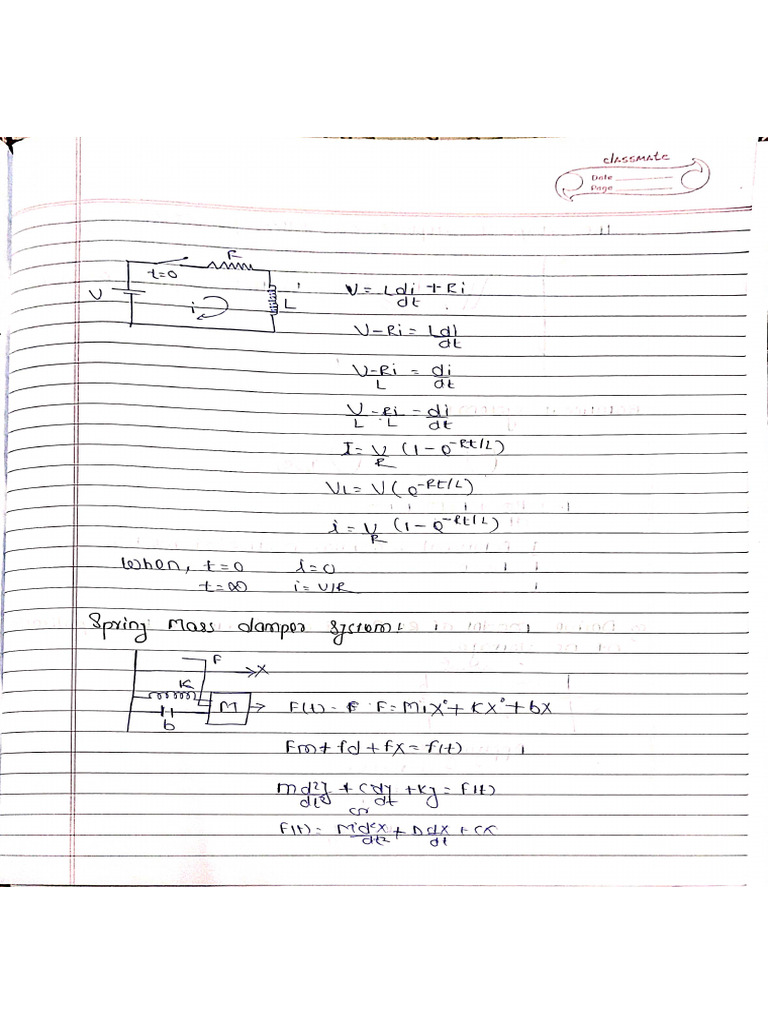 classmate
Date
Page
R
t=0
V
i
L
V = L di/dt + Ri
V-Ri = L di/dt
V-Ri/L = di/dt
V/L - Ri/L = di/dt
I = V/R (1 - e^-Rt/L)
VL = V(e^-Rt/L)
i = V/R (1 - e^-Rt/L)
When, t=0 i=0
t=∞ i=V/R
Spring Mass damper system:
F
X
K
M
b
F(t) = F = M1X° + KX° + bX
Fm + fd + fx = f(t)
Md²y/dt² + Cdy/dt + Ky = F(t)
or
F(t) = Md²X/dt² + Ddx/dt +